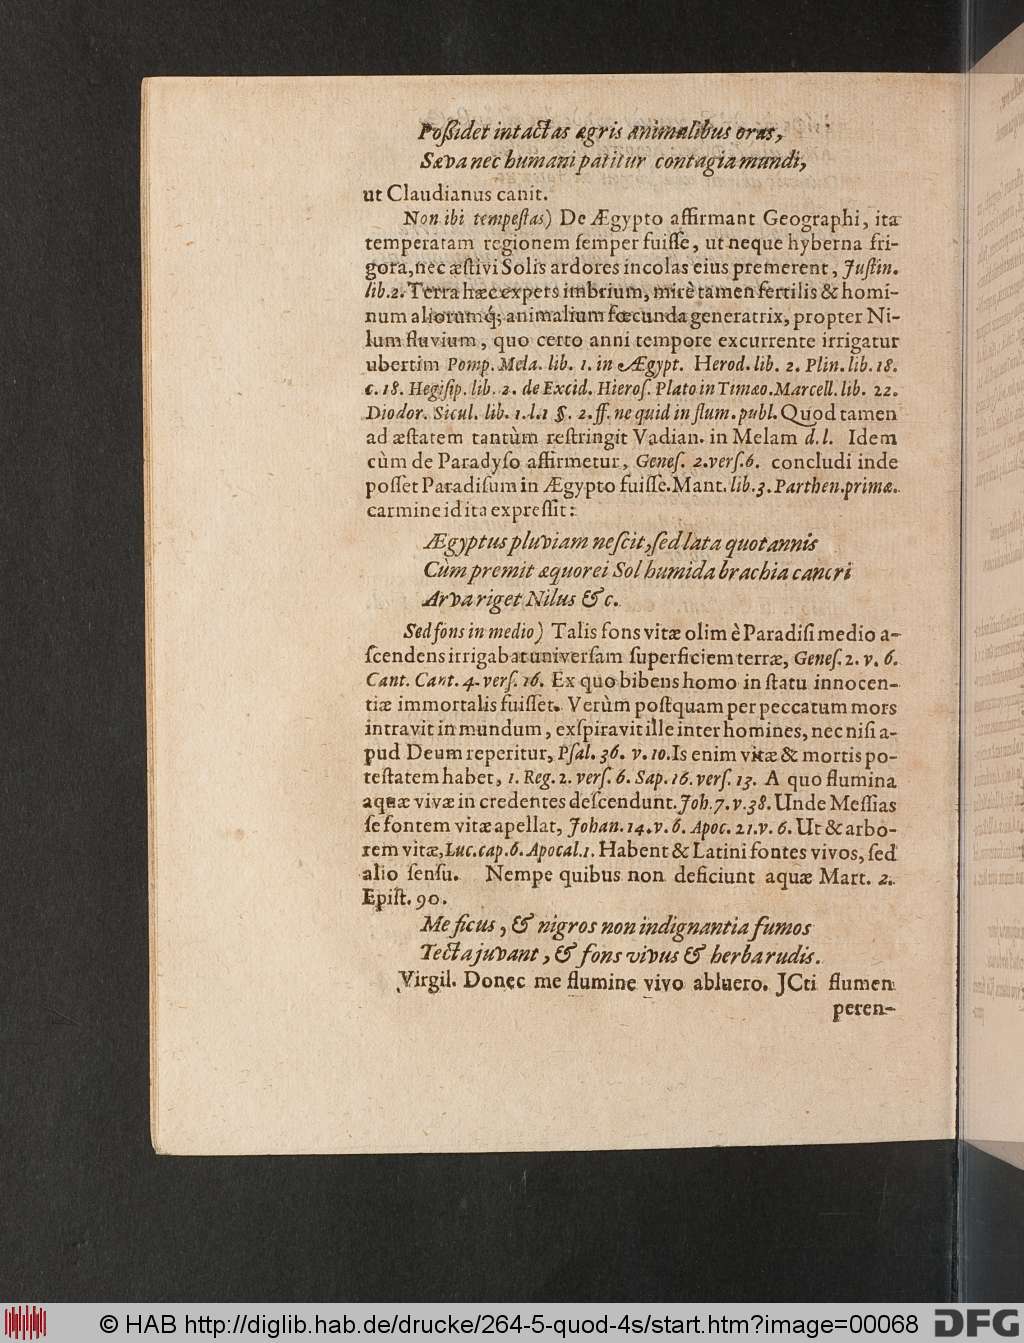 Poſſidet intactas ægris animalibus oras,
Sæva nec humani patitur contagia mundi,
ut Claudianus canit.
Non ibi tempeſtas) De Ægypto affirmant Geographi, ita
temperatam regionem ſemper fuiſſe, ut neque hyberna fri-
gora, nec æſtivi Solis ardores incolas eius premerent, Juſtin.
lib. 2. Terra hæc expers imbrium, mirè tamen fertilis & homi-
num aliorumq́; animalium fœcunda generatrix, propter Ni-
lum fluvium, quo certo anni tempore excurrente irrigatur
ubertim Pomp. Mela. lib. 1. in Ægypt. Herod. lib. 2. Plin. lib. 18.
c. 18. Hegiſip. lib. 2. de Excid. Hieroſ. Plato in Timæo. Marcell. lib. 22.
Diodor. Sicul. lib. 1. l. 1 §. 2. ff. ne quid in flum. publ. Quod tamen
ad æſtatem tantùm reſtringit Vadian. in Melam d. l. Idem
cùm de Paradyſo affirmetur, Geneſ. 2. verſ. 6. concludi inde
poſſet Paradiſum in Ægypto fuiſſe. Mant. lib. 3. Parthen. primæ.
carmine id ita expreſſit:
Ægyptus pluviam neſcit, ſed lata quotannis
Cùm premit æquorei Sol humida brachia cancri
Arva riget Nilus & c.
Sed fons in medio) Talis fons vitæ olim è Paradiſi medio a-
ſcendens irrigabat univerſam ſuperficiem terræ, Geneſ. 2. v. 6.
Cant. Cant. 4. verſ. 16. Ex quo bibens homo in ſtatu innocen-
tiæ immortalis fuiſſet. Verùm poſtquam per peccatum mors
intravit in mundum, exſpiravit ille inter homines, nec niſi a-
pud Deum reperitur, Pſal. 36. v. 10. Is enim vitæ & mortis po-
teſtatem habet, 1. Reg. 2. verſ. 6. Sap. 16. verſ. 13. A quo flumina
aquæ vivæ in credentes deſcendunt. Joh. 7. v. 38. Unde Meſſias
ſe fontem vitæ apellat, Johan. 14. v. 6. Apoc. 21. v. 6. Ut & arbo-
rem vitæ, Luc. cap. 6. Apocal. 1. Habent & Latini fontes vivos, ſed
alio ſenſu. Nempe quibus non deficiunt aquæ Mart. 2.
Epiſt. 90.
Me ficus, & nigros non indignantia fumos
Tecta juvant, & fons vivus & herba rudis.
Virgil. Donec me flumine vivo abluero. JCti flumen
peren-
© HAB http://diglib.hab.de/drucke/264-5-quod-4s/start.htm?image=00068
DFG